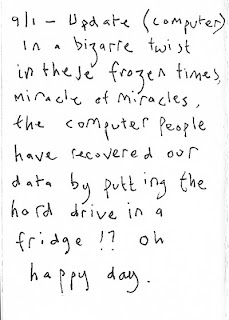 9/1 - Update (computer)
In a bizarre twist
in these frozen times,
miracle of miracles,
the computer people
have recovered our
data by putting the
hard drive in a
fridge !? oh
happy day.